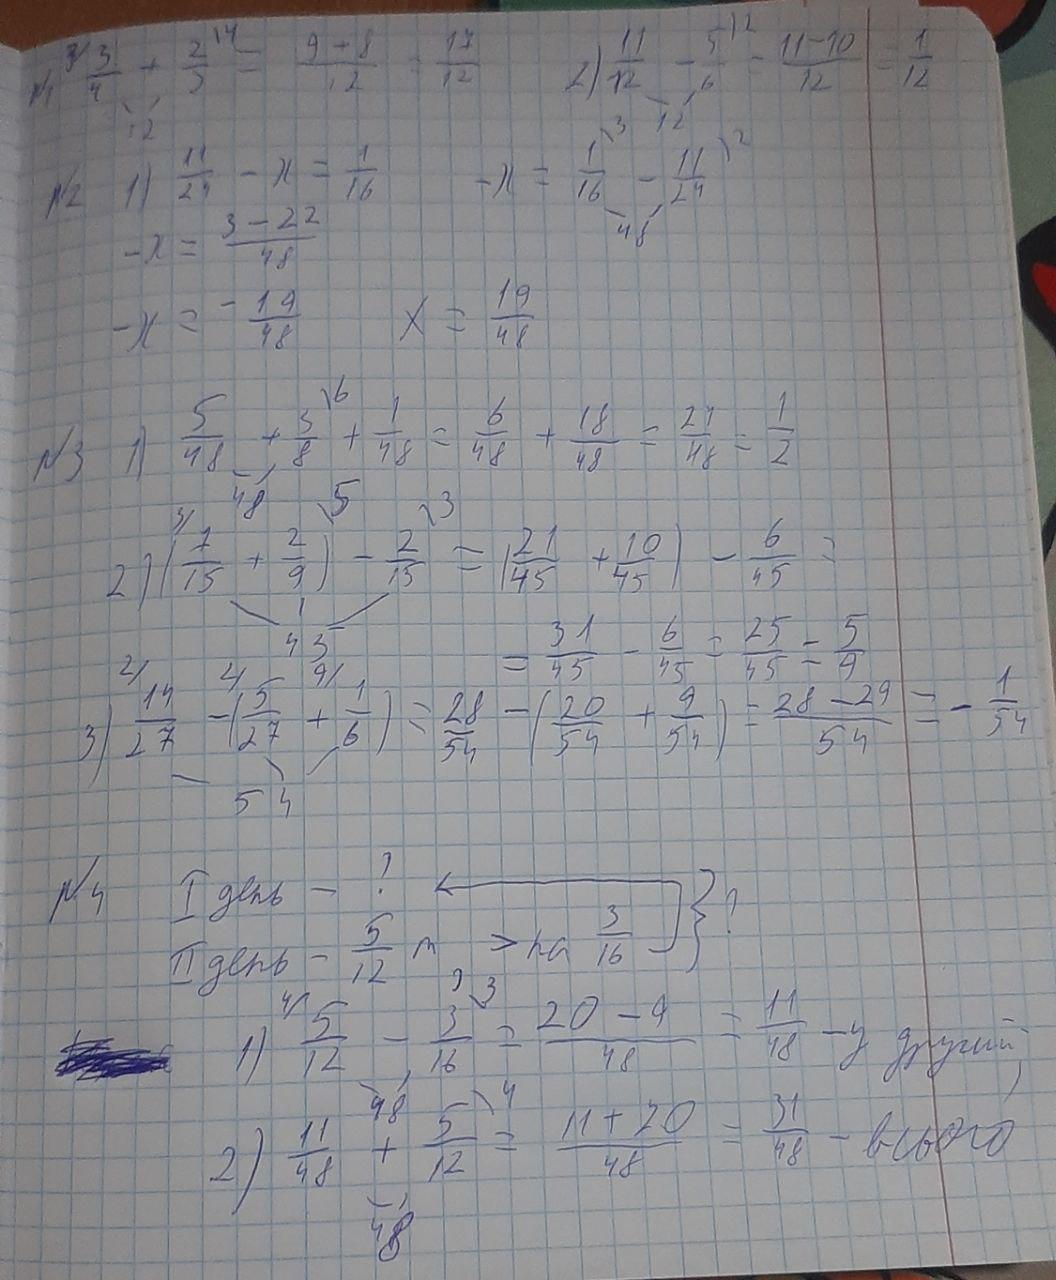 №1 3/ 3/4 + 2/3 \4 = (9+8)/12 = 17/12 2) 11/12 - 5/6 \2 = (11-10)/12 = 1/12
12 12
№2 1) 11/24 - x = 1/16 -x = 1/16 \3 - 11/24 \2
48
-x = (3-22)/48
-x = -19/48 x = 19/48
№3 1) 5/48 + 3/8 \6 + 1/48 = 6/48 + 18/48 = 24/48 = 1/2
48
2) (3/ 7/15 + 2/9 \5) - 2/15 \3 = (21/45 + 10/45) - 6/45 =
45
= 31/45 - 6/45 = 25/45 = 5/9
3) 2/ 14/27 - (2/ 5/27 + 9/ 1/6) = 28/54 - (20/54 + 9/54) = (28-29)/54 = -1/54
54
№4 I день - ?
II день - 5/12 т > на 3/16 } ?
1) 4/ 5/12 - 3/16 \3 = (20-9)/48 = 11/48 - у другий;
48
2) 11/48 + 5/12 \4 = (11+20)/48 = 31/48 - всього
48